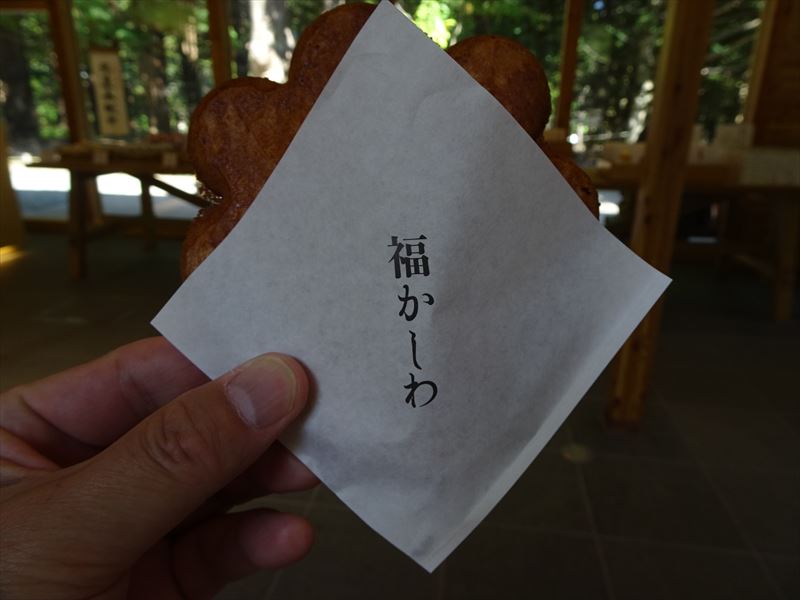 福かしわ